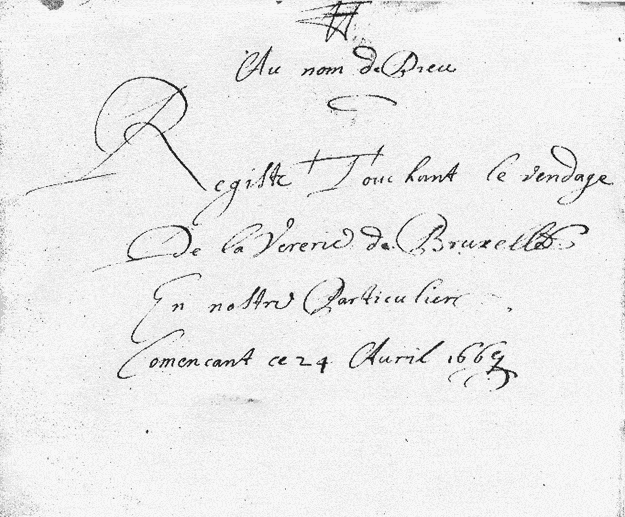 Au nom de Dieu
Registre Touchant le vendage
De la Vererie de Bruxelles
En nostre Particulier
Comencant ce 24 Avril 1669